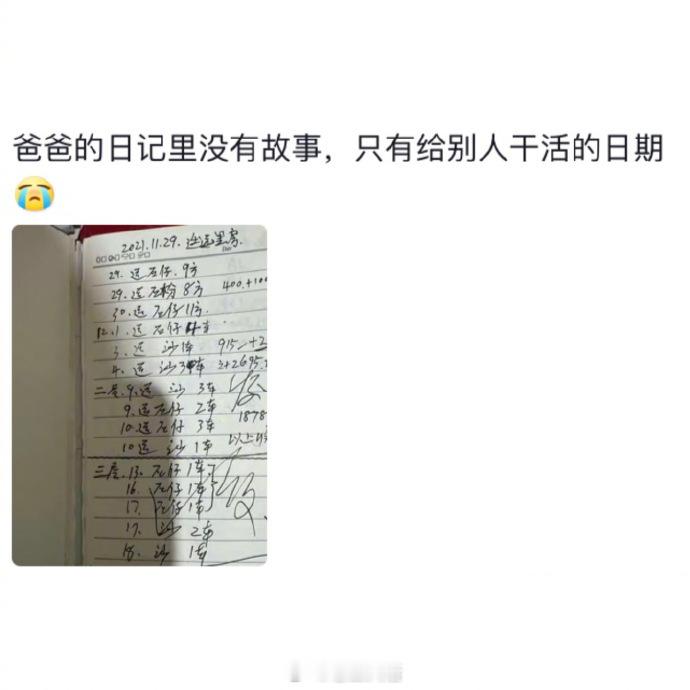 爸爸的日记里没有故事，只有给别人干活的日期
😭
2021.11.29.
29. 送石仔. 9方
29. 送石粉 8方 400.+100
30. 送石仔 11方.
12.1. 送石仔
3. 送 沙 1车 915
4. 送 沙 3车
二层. 9. 送 沙 3车
9. 送石仔 2车
10. 送石仔 3车 1878
10 送 沙 1车 以上
三层. 13. 石仔 1车
16. 石仔 1车
17. 石仔 1车
17. 沙 2车
18. 沙 1车